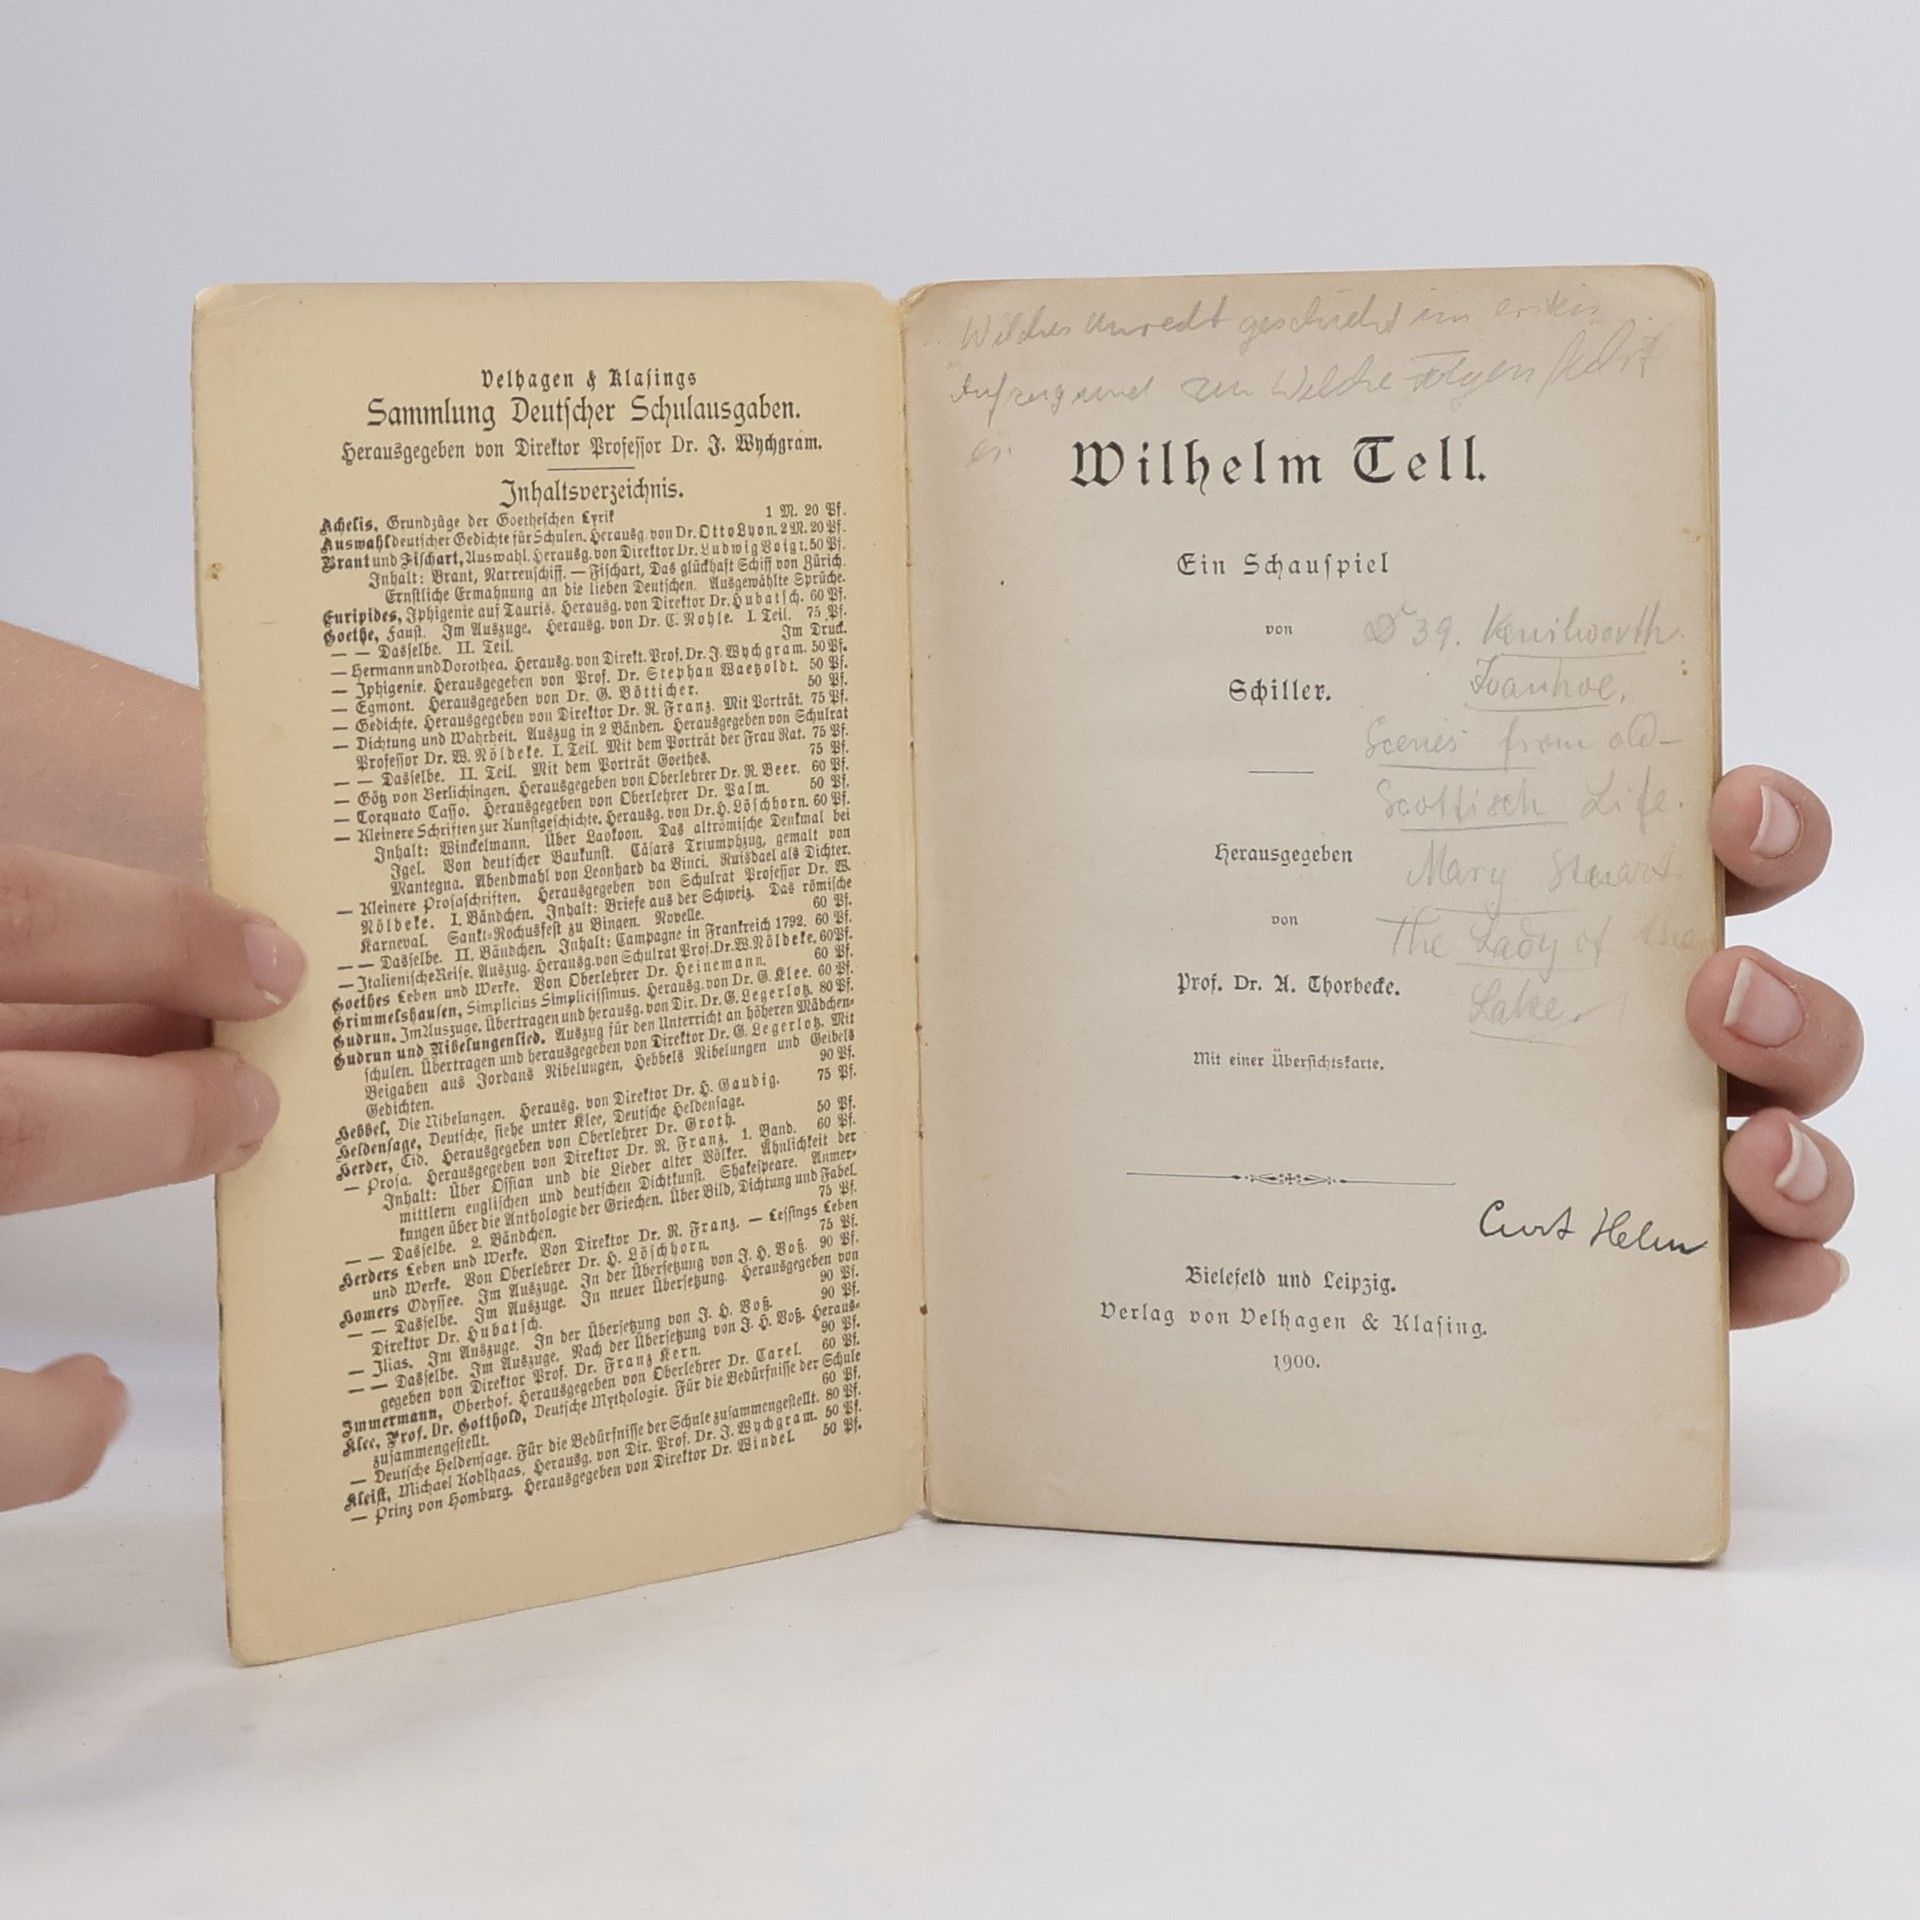 Velhagen & Klasings
Sammlung Deutscher Schulausgaben.
Herausgegeben von Direktor Professor Dr. J. Wychgram.
Inhaltsverzeichnis.
Achelis, Grundzüge der Goetheschen Lyrik 1 M. 20 Pf.
Auswahl deutscher Gedichte für Schulen. Herausg. von Dr. Otto Lyon. 2 M. 20 Pf.
Brant und Fischart, Auswahl. Herausg. von Direktor Dr. Ludwig Voigt. 50 Pf.
Inhalt: Brant, Narrenschiff. — Fischart, Das glückhaft Schiff von Zürich.
Ernstliche Ermahnung an die lieben Deutschen. Ausgewählte Sprüche.
Euripides, Iphigenie auf Tauris. Herausg. von Direktor Dr. Hubatsch. 60 Pf.
Goethe, Faust. Im Auszuge. Herausg. von Dr. C. Nohle. I. Teil. 75 Pf.
— — Dasselbe. II. Teil. Im Druck.
— Hermann und Dorothea. Herausg. von Direkt. Prof. Dr. J. Wychgram. 50 Pf.
— Iphigenie. Herausgegeben von Prof. Dr. Stephan Waetzoldt. 50 Pf.
— Egmont. Herausgegeben von Dr. G. Bötticher. 50 Pf.
— Gedichte. Herausgegeben von Direktor Dr. R. Franz. Mit Porträt. 75 Pf.
— Dichtung und Wahrheit. Auszug in 2 Bänden. Herausgegeben von Schulrat
Professor Dr. W. Nöldeke. I. Teil. Mit dem Porträt der Frau Rat. 75 Pf.
— — Dasselbe. II. Teil. Mit dem Porträt Goethes. 75 Pf.
— Götz von Berlichingen. Herausgegeben von Oberlehrer Dr. R. Beer. 60 Pf.
— Torquato Tasso. Herausgegeben von Oberlehrer Dr. Palm. 50 Pf.
— Kleinere Schriften zur Kunstgeschichte. Herausg. von Dr. H. Löschhorn. 60 Pf.
Inhalt: Winckelmann. Über Laokoon. Das altrömische Denkmal bei
Igel. Von deutscher Baukunst. Cäsars Triumphzug, gemalt von
Mantegna. Abendmahl von Leonhard da Vinci. Ruisdael als Dichter.
— Kleinere Prosaschriften. Herausgegeben von Schulrat Professor Dr. W.
Nöldeke. I. Bändchen. Inhalt: Briefe aus der Schweiz. Das römische
Karneval. Sankt-Rochusfest zu Bingen. Novelle. 60 Pf.
— — Dasselbe. II. Bändchen. Inhalt: Campagne in Frankreich 1792. 60 Pf.
— Italienische Reise. Auszug. Herausg. von Schulrat Prof. Dr. W. Nöldeke. 60 Pf.
Goethes Leben und Werke. Von Oberlehrer Dr. Heinemann. 60 Pf.
Grimmelshausen, Simplicius Simplicissimus. Herausg. von Dr. G. Klee. 60 Pf.
Gudrun. Im Auszuge. Übertragen und herausg. von Dir. Dr. G. Legerlotz. 80 Pf.
Gudrun und Nibelungenlied. Auszug für den Unterricht an höheren Mädchen-
schulen. Übertragen und herausgegeben von Direktor Dr. G. Legerlotz. Mit
Beigaben aus Jordans Nibelungen, Hebbels Nibelungen und Geibels
Gedichten. 90 Pf.
Hebbel, Die Nibelungen. Herausg. von Direktor Dr. H. Gaudig. 75 Pf.
Heldensage, Deutsche, siehe unter Klee, Deutsche Heldensage.
Herder, Cid. Herausgegeben von Oberlehrer Dr. Groth. 50 Pf.
— Prosa. Herausgegeben von Direktor Dr. R. Franz. 1. Band. 60 Pf.
Inhalt: Über Ossian und die Lieder alter Völker. Ähnlichkeit der
mittlern englischen und deutschen Dichtkunst. Shakespeare. Anmer-
kungen über die Anthologie der Griechen. Über Bild, Dichtung und Fabel.
— — Dasselbe. 2. Bändchen. 75 Pf.
Herders Leben und Werke. Von Direktor Dr. R. Franz. — Lessings Leben
und Werke. Von Oberlehrer Dr. H. Löschhorn. 75 Pf.
Homers Odyssee. Im Auszuge. In der Übersetzung von J. H. Voß. 90 Pf.
— — Dasselbe. Im Auszuge. In neuer Übersetzung. Herausgegeben von
Direktor Dr. Hubatsch. 90 Pf.
— Ilias. Im Auszuge. In der Übersetzung von J. H. Voß. 90 Pf.
— — Dasselbe. Im Auszuge. Nach der Übersetzung von J. H. Voß. Heraus-
gegeben von Direktor Prof. Dr. Franz Kern. 90 Pf.
Immermann, Oberhof. Herausgegeben von Oberlehrer Dr. Carel. 60 Pf.
Klee, Prof. Dr. Gotthold, Deutsche Mythologie. Für die Bedürfnisse der Schule
zusammengestellt. 60 Pf.
— Deutsche Heldensage. Für die Bedürfnisse der Schule zusammengestellt. 80 Pf.
Kleist, Michael Kohlhaas. Herausg. von Dir. Prof. Dr. J. Wychgram. 50 Pf.
— Prinz von Homburg. Herausgegeben von Direktor Dr. Windel. 50 Pf.
Welches Unrecht geschieht im ersten
Aufzug und zu Welche Folgen führt
er
Wilhelm Tell.
Ein Schauspiel
von
39. Kenilworth
Ivanhoe.
Schiller.
Scenes from old-
Scottisch Life.
Herausgegeben
Mary Stuart
von
The Lady of the
Prof. Dr. A. Thorbecke.
Lake.
Mit einer Übersichtskarte.
Curt Helm
Bielefeld und Leipzig.
Verlag von Velhagen & Klasing.
1900.